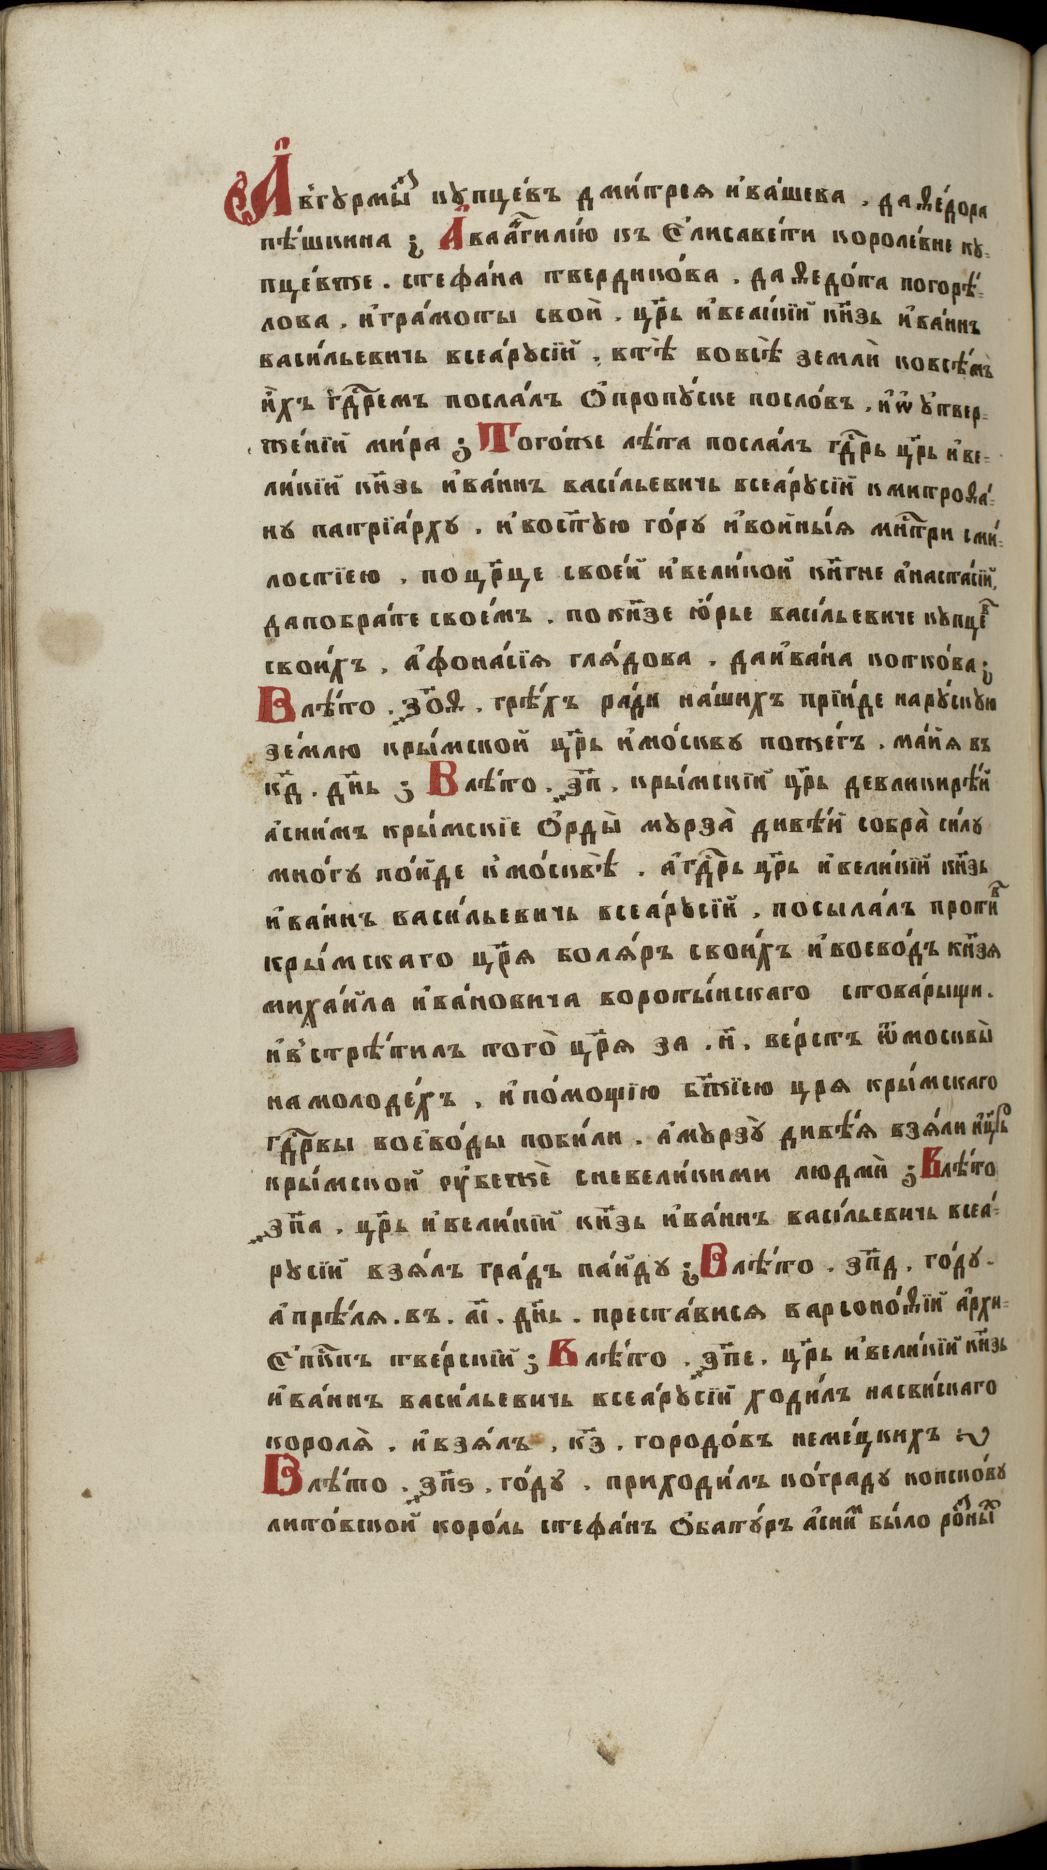 А҆ в̾гурмы́зъ купце́въ дми́трея и҆ва́шева . да ѳе́дора
пѣ́шкина ; А҆ ваа́глилі́ю къ є҆лисаве́ти короле́вне ку-
пце́вже . стефа́на твердико́ва . да ѳедо́та погорѣ́-
лова . и҆ гра́моты свои̑ . цр҃ь и҆ вели́кїй кн҃зь и҆ва́ннъ
васи́льевичь всеа́русїй . в тѣ̀ во всѣ̀ земли̑ ко всѣ́мъ
и҆́хъ гд҃ремъ посла́лъ ѻ҆ пропу́ске посло́въ . и҆ ѡ҆ у҆твер-
же́нїй ми́ра ; Того́же лѣ́та посла́лъ гд҃рь цр҃ь и҆ ве-
ли́кїй кн҃зь и҆ва́ннъ васі́льевичь всеа́русїй к митроѳа́-
ну патрїа́рху . и҆ во ст҃ую го́ру и҆ во и҆ны́я мн҃три с ми́-
лостїею . по цр҃це свое́й и҆ вели́кой кн҃гне а҆наста́сїй,
да по бра́те свое́мъ . по кн҃зе ю҆́рье васі́льевиче купце́въ
свои́хъ . а҆фона́сїя гля́дова . да и҆ва́на котко́ва ;
В лѣ́то . ҂зо҃ѳ . грѣ́хъ ра́ди на́шихъ прїи́де на ру́скую
зе́млю кры́мской цр҃ь и҆ мо́скву поже́гъ . ма́йя въ
кд҃ . дн҃ь ; В лѣ́то . ҂зп҃ . кры́мскїй цр҃ь девликирѣ́й
а҆ с ни́мъ кры́мскїе ѻ҆рды̑ мурза̀ дивѣ́й собра̀ си́лу
мно́гу по́йде к мо́сквѣ̀ . а҆ гд҃рь цр҃ь и҆ вели́кїй кн҃зь
и҆ва́ннъ васи́льевичь всеа́русїй . посыла́лъ проти́въ
кры́мскаго цр҃я боля́ръ свои́хъ и҆ воево́дъ кн҃зя
миха́йла и҆ва́новича вороты́нскаго с това́рыщи .
и҆ в̾стрѣ́тилъ того̀ цр҃я за . н҃ . ве́рстъ ѿ москвы̀
на молоде́хъ . и҆ по́мощїю бж҃їею цря кры́мскаго
гд҃рвы воево́ды поби́ли . а҆ мурзу̀ дивѣ́я взя́ли а҆ цр҃ь
кры́мской оу҆бежѐ с невели́кими людми̑ ; В лѣ́то
҂зп҃а . цр҃ь и҆ вели́кїй кн҃зь и҆ва́ннъ васі́льевичь всеа́-
русїй взя́лъ гра́дъ па́йду ; В лѣ́то . зп҃д . го́ду .
а҆прѣ́ля . въ . аі҃ . дн҃ь . преста́вися варсоно́ѳїй а҆рхи-
є҆пк҃пъ тве́рскїй ; В лѣ́то . ҂зп҃е . цр҃ь и҆ вели́кїй кн҃зь
и҆ва́ннъ васи́льевичь всеа́русїй ходи́лъ на сви́скаго
короля̀ . и҆ взя́лъ . кз҃ . городо́въ неме́цкихъ
В лѣ́то . ҂зп҃ѕ . го́ду . приходи́лъ ко граду ко пско́ву
лито́вской коро́ль стефа́нъ ѻ҆бату́ръ а҆ с ни́мъ бы́ло ро́зныхъ